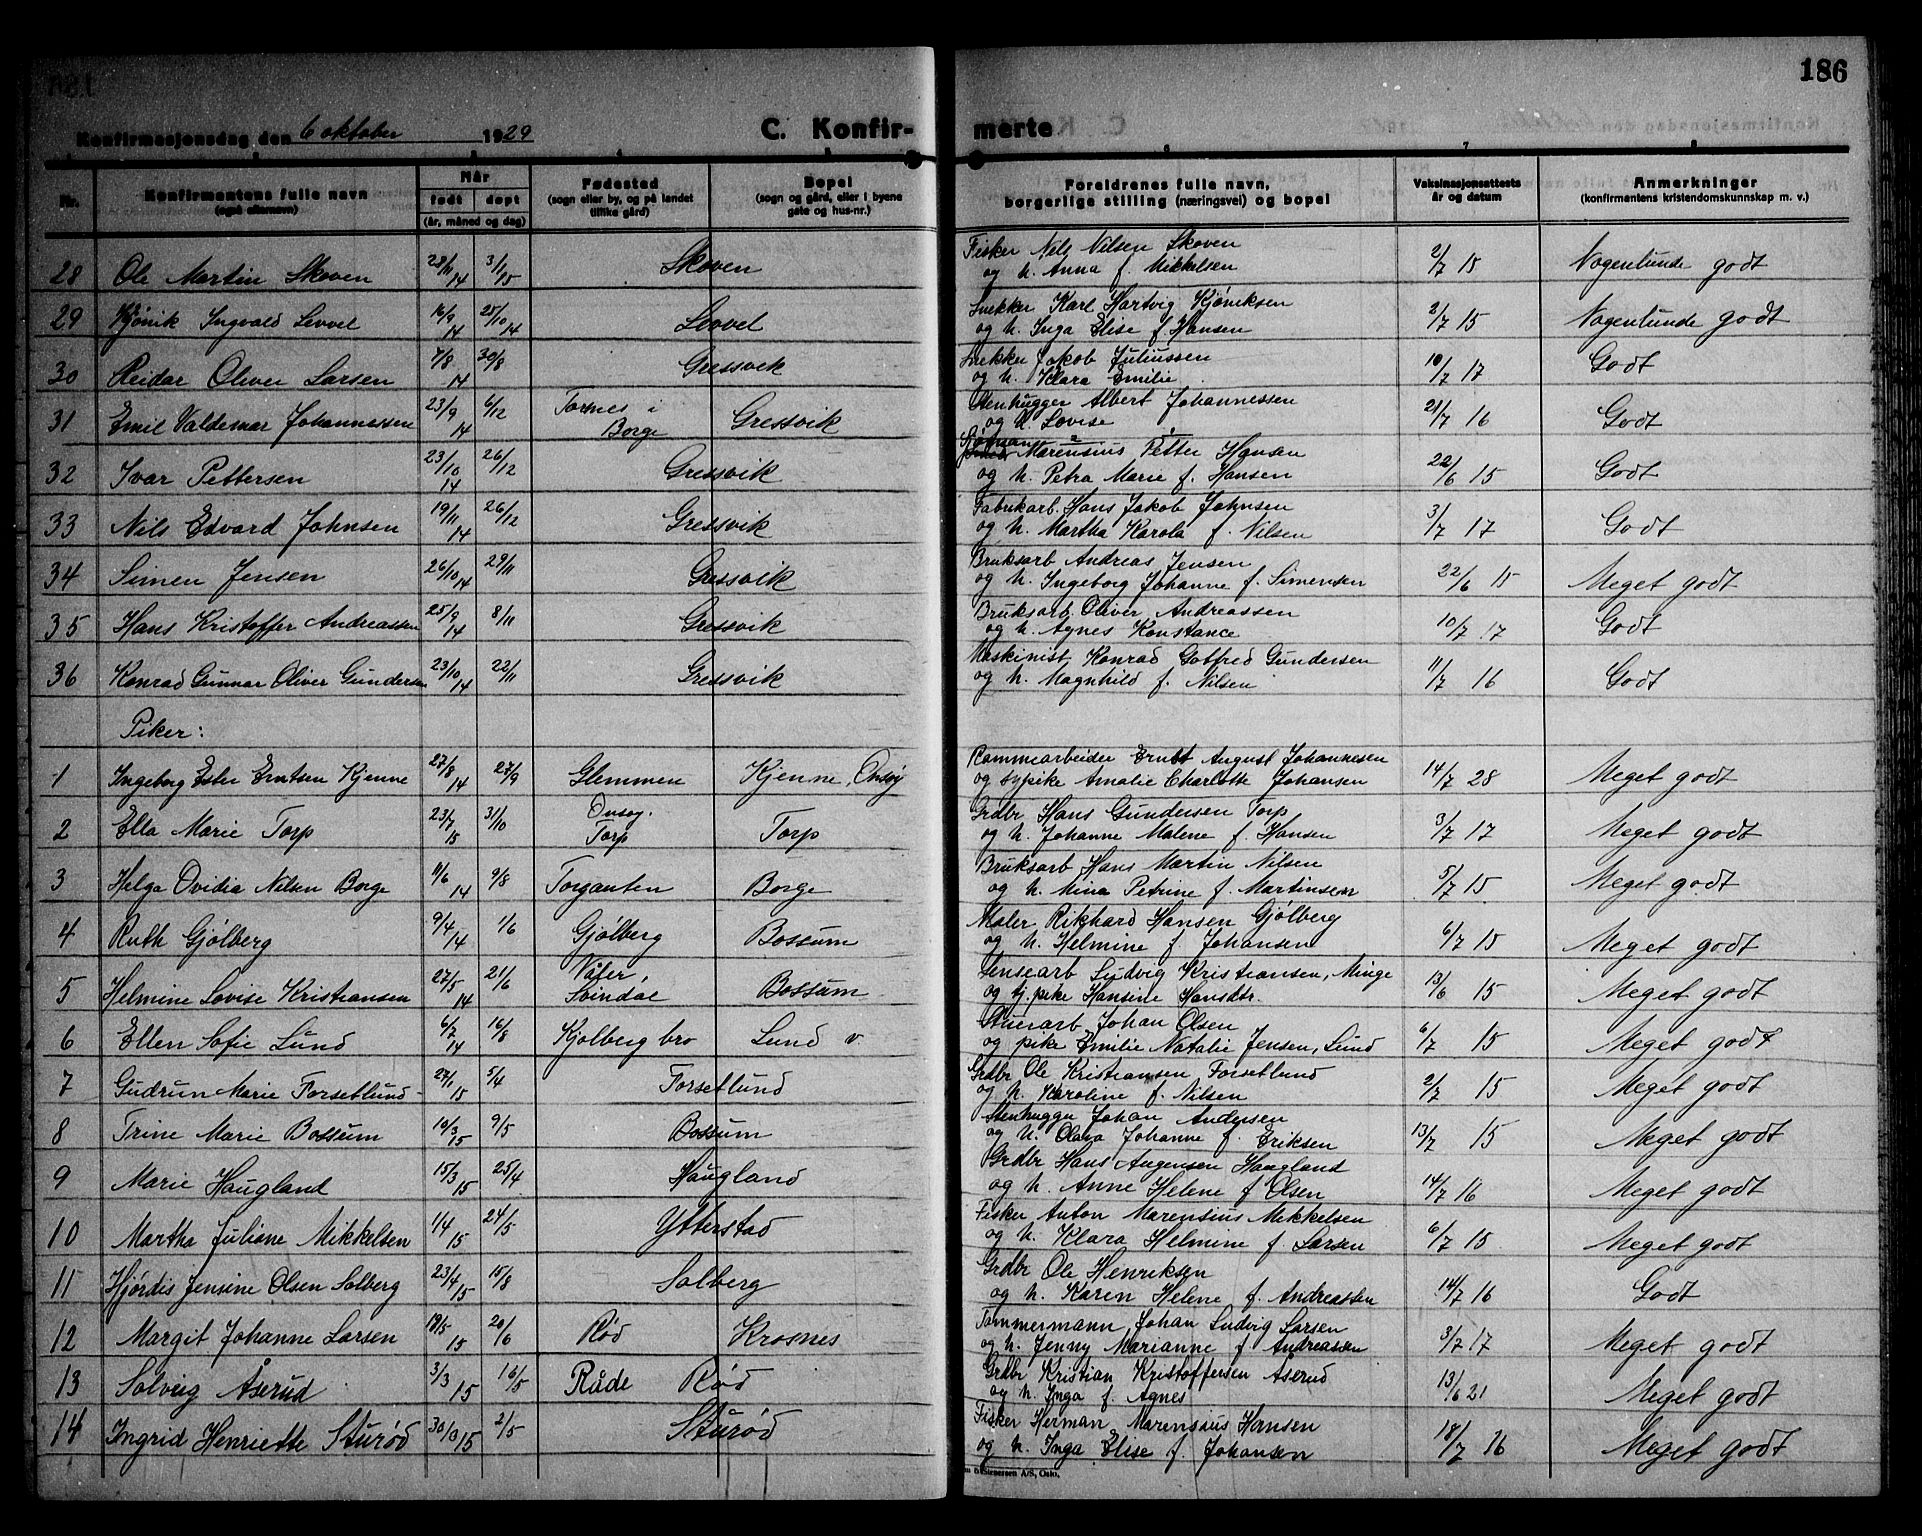 186
Konfirmasjonsdag den 6 oktober 1929 C. Konfir- merte
6 7
Nr. Konfirmantens fulle navn (også efternavn) Når født døpt (år, måned og dag) Fødested (sogn eller by, og på landet tillike gård) Bopel (sogn og gård, eller i byene gate og hus-nr.) Foreldrenes fulle navn, borgerlige stilling (næringsvei) og bopel Vaksinasjonsattests år og datum Anmerkninger (konfirmantens kristendomskunnskap m. v.)
28 Ole Martin Skoven 28/11 14 3/1 15 Skoven Fisker Nils Nilsen Skoven
og h. Anna f. Mikkelsen 2/7 15 Nogenlunde godt
29 Kjønik Ingvald Levvel 16/9 14 25/10 14 Levvel Snekker Karl Hartvig Kjøniksen
og h. Inga Elise f. Hansen 2/7 15 Nogenlunde godt
30 Reidar Oliver Larsen 7/8 14 30/8 Gressvik Snekker Jakob Juliussen
og h. Klara Emilie 10/7 17 Godt
31 Emil Valdemar Johannessen 23/9 14 6/12 Tornes i Borge Gressvik Stenhugger Albert Johannessen
og h Lovise 21/7 16 Godt
32 Ivar Pettersen 23/10 14 26/12 Gressvik Sjømann Marensius Petter Hansen
og h. Petra Marie f. Hansen 22/6 15 Godt
33 Nils Edvard Johnsen 19/11 14 26/12 Gressvik Fabrikarb. Hans Jakob Johnsen
og h. Martha Karola f. Nilsen 3/7 17 Godt
34 Simen Jensen 26/10 14 29/11 Gressvik Bruksarb Andreas Jensen
og h. Ingeborg Johanne f. Simensen 22/6 15 Meget godt
35 Hans Kristoffer Andreassen 25/9 14 8/11 Gressvik Bruksarb. Oliver Andreassen
og h. Agnes Konstance 10/7 17 Godt
36 Konrad Gunnar Oliver Gundersen 23/10 14 22/11 Gressvik Maskinist Konrad Gotfred Gundersen
og h. Magnhild f. Nilsen 11/7 16 Godt
Piker:
1 Ingeborg Ester Erntsen Kjenne 27/8 14 27/9 Glemmen Kjenne, Onsøy Rammearbeider Ernst August Johannesen
og sypike Amalie Charlotte Johansen 14/7 28 Meget godt
2 Ella Marie Torp 23/7 15 31/10 Onsøy. Torp Torp Grdbr Hans Gundersen Torp
og h. Johanne Malene f. Hansen 3/7 17 Meget godt
3 Helga Ovidia Nilsen Borge 11/6 14 9/8 Torgauten Borge Bruksarb Hans Martin Nilsen
og h. Mina Petrine f. Martinsen 5/7 15 Meget godt
4 Ruth Gjølberg 9/4 14 1/6 Gjølberg Bossum Maler Rikhard Hansen Gjølberg
og h. Helmine f. Johansen 6/7 15 Meget godt
5 Helmine Lovise Kristiansen 27/5 14 21/6 Våler, Svindal Bossum Lensearb Ludvig Kristiansen, Minge
og tj. pike Hansine Hansdtr. 13/6 15 Meget godt
6 Ellen Sofie Lund 6/7 14 16/8 Kjølberg bro Lund v Stuerarb Johan Olsen
og pike Emilie Natalie Jensen, Lund 6/7 15 Meget godt
7 Gudrun Marie Forsetlund 27/1 15 5/4 Forsetlund Grdbr Ole Kristiansen Forsetlund
og h. Karoline f. Nilsen 2/7 15 Meget godt
8 Trine Marie Bossum 10/3 15 9/5 Bossum Stenhugger Johan Andersen
og h. Olava Johanne f. Eriksen 13/7 15 Meget godt
9 Marie Haugland 15/3 15 25/4 Haugland Grdbr Hans Augensen Haugland
og h. Anne Helene f Olsen 14/7 16 Meget godt
10 Martha Juliane Mikkelsen 1/4 15 24/5 Ytterstad Fisker Anton Marensius Mikkelsen
og h. Klara Helmine f. Larsen 6/7 15 Meget godt
11 Hjørdis Jensine Olsen Solberg 23/4 15 15/8 Solberg Grdbr Ole Henriksen
og h. Karen Helene f. Andreassen 14/7 16 Godt
12 Margit Johanne Larsen 18/5 15 20/6 Rød Krosnes Tømmermann Johan Ludvig Larsen
og h. Jenny Marianne f Andreassen 3/7 17 Meget godt
13 Solveig Åserud 3/3 15 16/5 Råde Rød Grdbr Kristian Kristoffersen Åserud
og h. Inga f. Agnes 13/6 21 Meget godt
14 Ingrid Henriette Sturød 30/3 15 2/5 Sturød Fisker Herman Marensius Hansen
og h. Inga Elise f. Johansen 18/7 16 Meget godt
Stenersen A/S, Oslo.